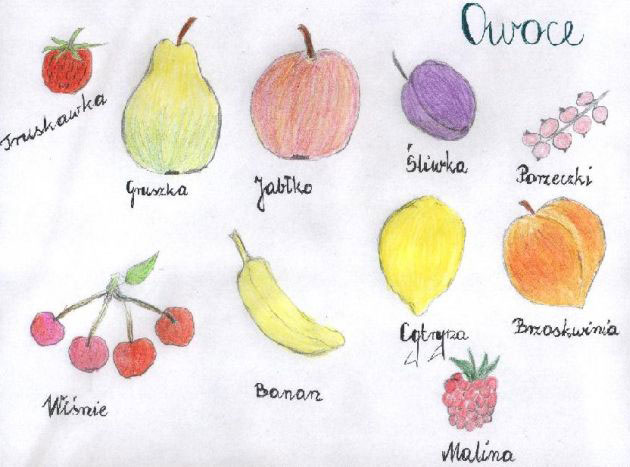 Owoce
Truskawka
Gruszka
Jabłko
Śliwka
Porzeczki
Wiśnie
Banan
Cytryna
Brzoskwinia
Malina